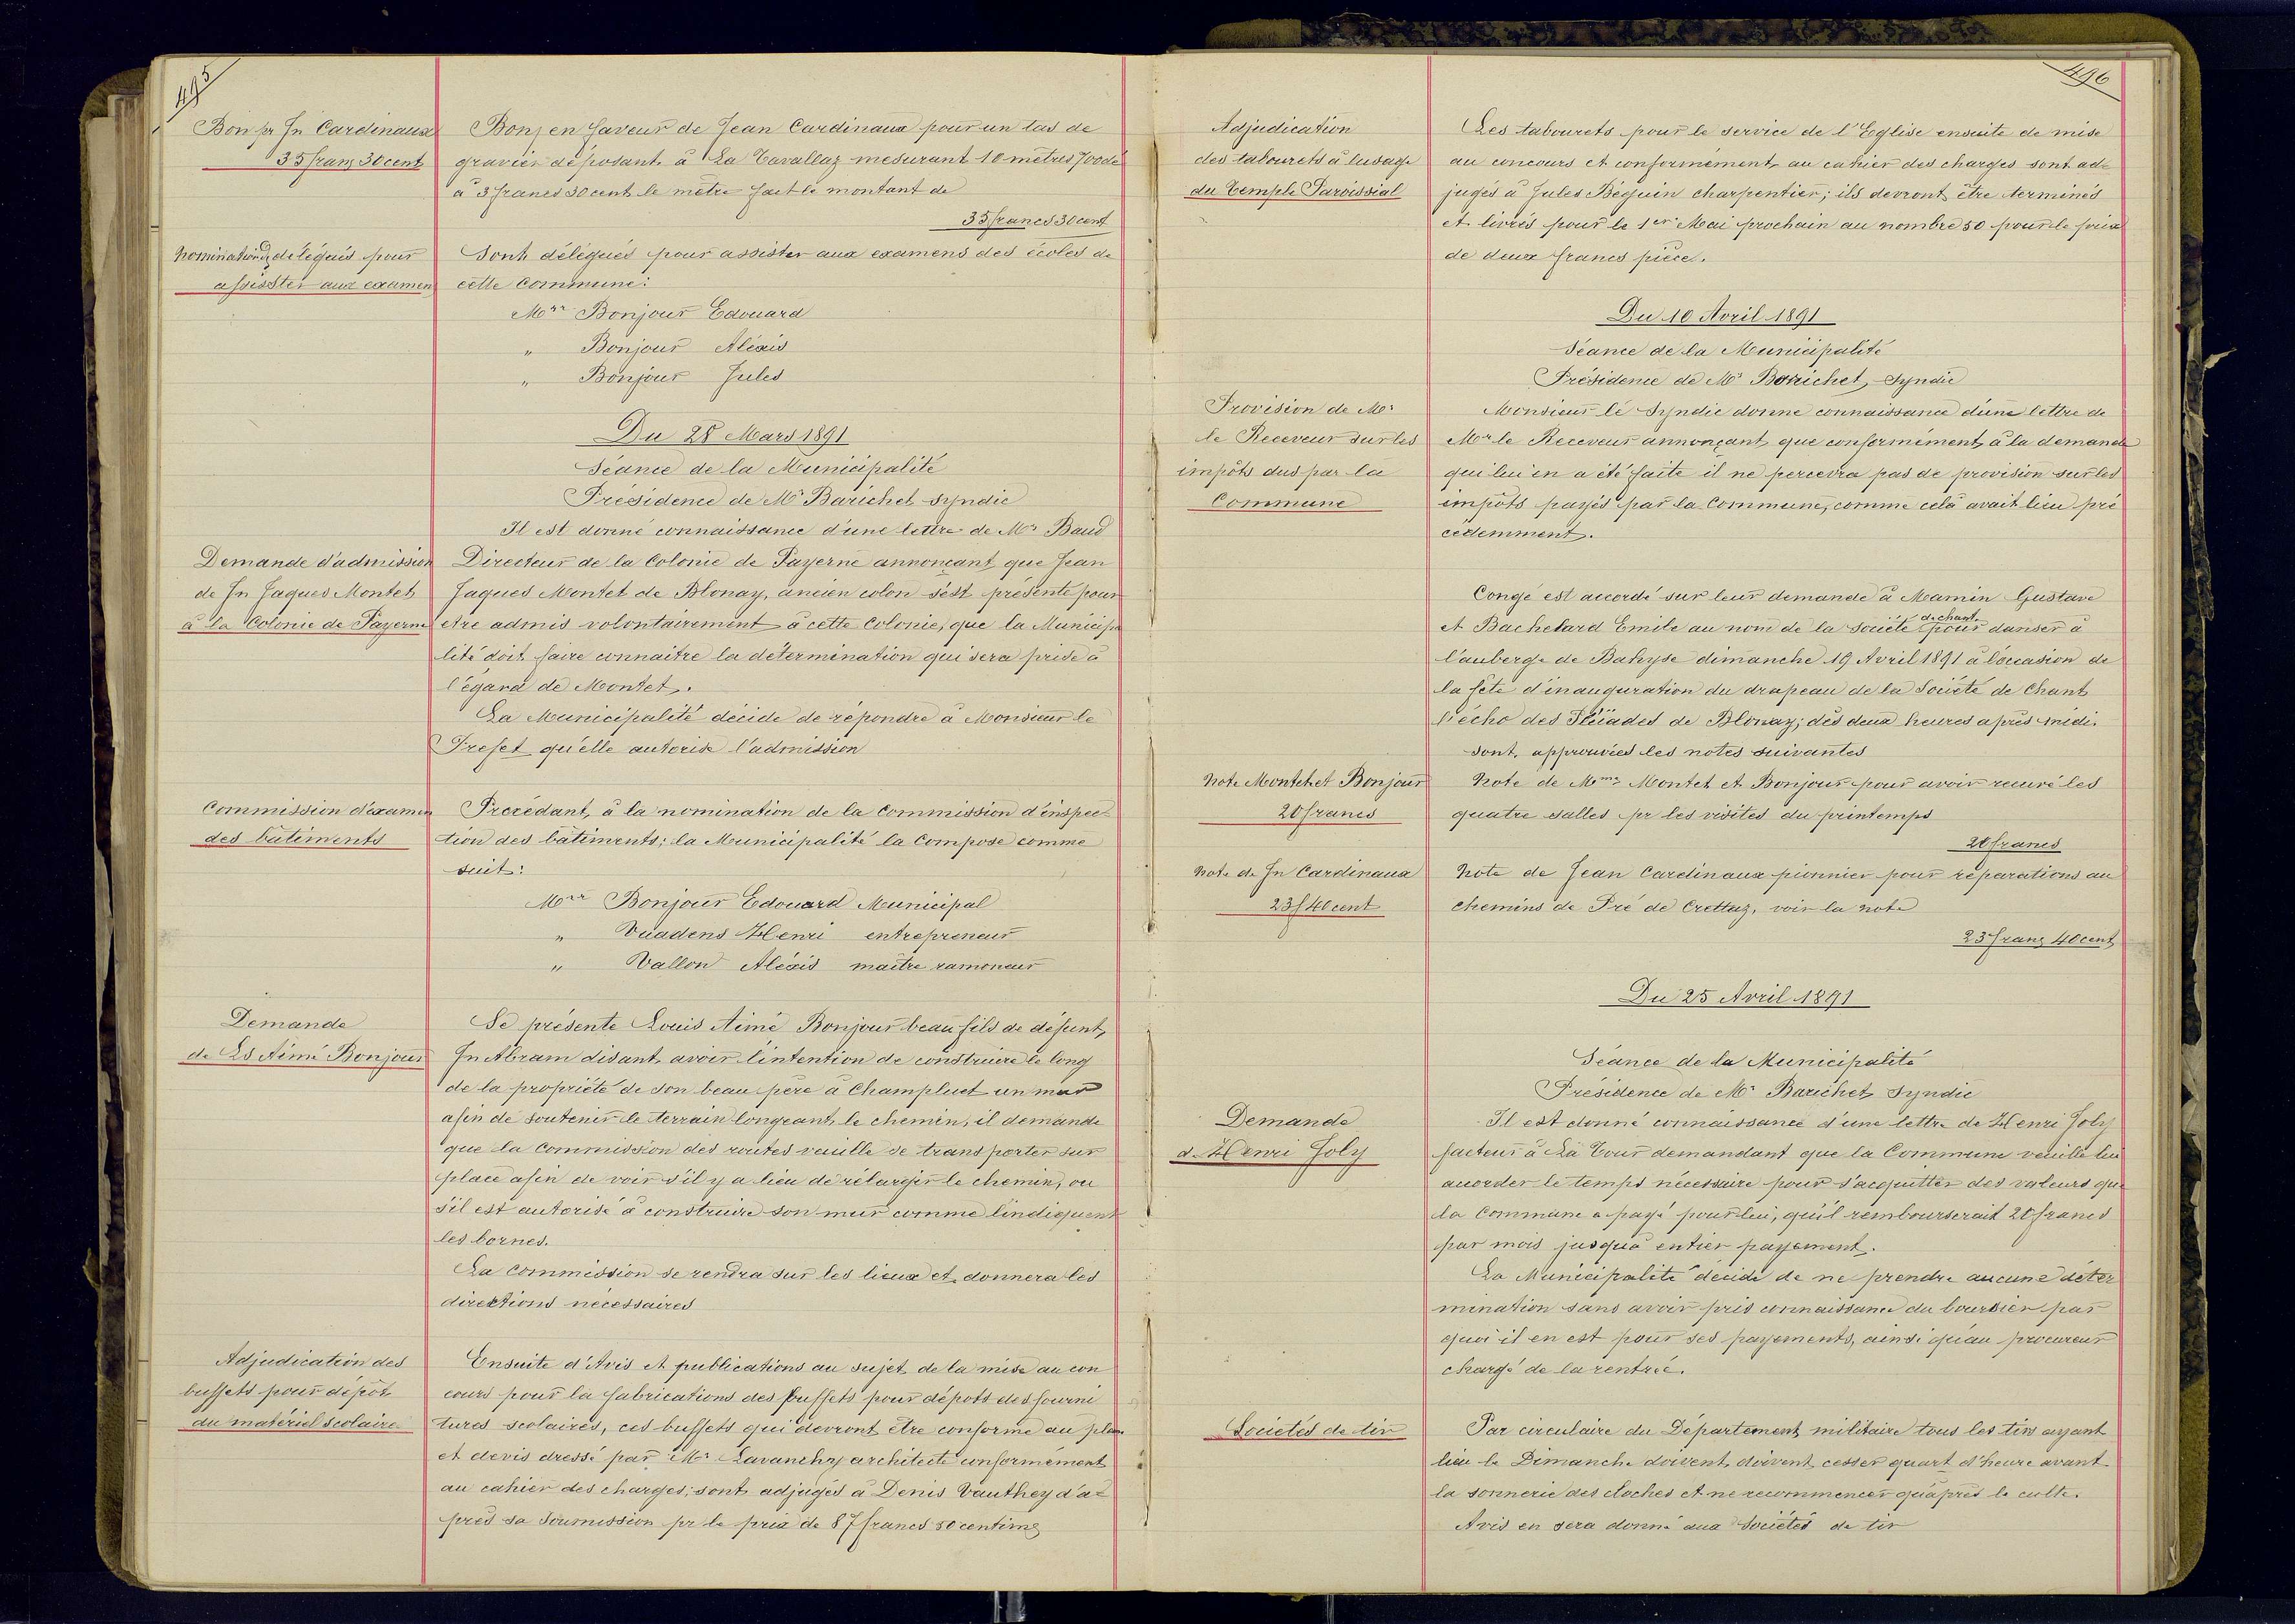 495
Bon pr Jn Cardinaux
35 franc 30 cent
Bon en faveur de Jean Cardinaux pour un tas de
gravier déposant à La Cavallaz mesurant 10 mètres 700 de
à 3 francs 30 cent le mètre fait le montant de
35 francs 30 cent
Nomination de délégués pour
assisster aux examen
Sont délégués pour assister aux examens des écoles de
cette Commune:
Mrs Bonjour Edouard
" Bonjour Aléxis
" Bonjour Jules
Du 28 Mars 1891
Séance de la Municipalité
Présidence de Mr Barichet Syndic
Il est donné connaissance d'une lettre de Mr Baud
Demande d'admission
de Jn Jaques Montet
à la Colonie de Payerne
Directeur de la Colonie de Payerne annonçant que Jean
Jaques Montet de Blonay, ancien colon s'est présenté pour
etre admis volontairement à cette Colonie, que la Municipa
lité doit faire connaitre la détermination qui sera prise à
l'égard de Montet.
La Municipalité décide de répondre à Monsieur le
Préfet qu'elle autorise l'admission
Commission d'examen
des bâtiments
Procédant à la nomination de la Commission d'inspec-
tion des bâtiments; la Municipalité la Compose comme
suit:
Mrs Bonjour Edouard Municipal
" Vuadens Henri entrepreneur
" Vallon Aléxis maître ramoneur
Demande
de Ls Aimé Bonjour
Se présente Louis Aimé Bonjour beau fils de défunt
Jn Abram disant avoir l'intention de construire le long
de la propriété de son beau père à Champluet un mur
afin de soutenir le terrain longeant le chemin, il demande
que la Commission des routes veuille se transporter sur
place afin de voir s'il y a lieu de rélargir le chemin, ou
s'il est autorisé à construire son mur comme l'indiquent
les bornes.
La Commission se rendra sur les lieux et donnera les
direktions nécessaires
Adjudication des
buffets pour dépôt
du matériel scolaire
Ensuite d'Avis et publications au sujet de la mise au con
cours pour la fabrications des Buffets pour dépots des fourni
tures scolaires, ces buffets qui devront être conforme au plan
et devis dressé par Mr Lavanchy architecte conformément
au cahier des charges; sont adjugés à Denis Vauthey d'a-
près sa soumission pr le prix de 87 francs 50 centimes
496
Adjudication
des tabourets à l'usage
du Temple Paroissial
Les tabourets pour le service de l'Eglise ensuite de mise
au concours et conformément au cahier des charges sont ad-
jugés à Jules Béguin charpentier; ils devront être terminés
et livrés pour le 1er Mai prochain au nombre 50 pour le prix
de deux francs pièce.
Du 10 Avril 1891
Séance de la Municipalité
Présidence de Mr Barichet, Syndic
Provision de Mr
le Receveur sur les
impôts dus par la
Commune
Monsieur le Syndic donne connaissance d'une lettre de
Mr le Receveur annonçant que conformément à la demande
qui lui en a été faite il ne percevra pas de provision sur les
impôts payés par la Commune, comme celà avait lieu pré
cédemment.
Congé est accordé sur leur demande à Mamin Gustave
et Bachelard Emile au nom de la Société de chant pour danser à
l'auberge de Bahyse dimanche 19 Avril 1891 à l'occasion de
la fête d'inauguration du drapeau de la Société de Chant
l'écho des Pléïades de Blonay; dès deux heures après midi.
sont approuvées les notes suivantes
Note Montet et Bonjour
20 francs
Note de Mmes Montet et Bonjour pour avoir recuré les
quatre salles pr les visites du printemps
20 francs
Note de Jn Cardinaux
23 f 40 cent
Note de Jean Cardinaux pionnier pour réparations au
chemins de Pré de Crettaz, voir la note
23 franc 40 cent
Du 25 Avril 1891
Séance de la Municipalité
Présidence de Mr Barichet Syndic
Demande
d. Henri Joly
Il est donné connaissance d'une lettre de Henri Joly
facteur à La Tour demandant que la Commune veuille lui
accorder le temps nécessaire pour s'acquitter des valeurs que
la Commune a payé pour lui, qu'il rembourserait 20 francs
par mois jusqu'à entier payement.
La Municipalité décide de ne prendre aucune déter
mination sans avoir pris connaissance du boursier par
quoi il en est pour ses payements, ainsi qu'au procureur
chargé de la rentrée.
Sociétés de tir
Par circulaire du Département militaire tous les tirs ayant
lieu le Dimanche doivent doivent cesser quart d'heure avant
la sonnerie des cloches et ne recommencer qu'après le culte.
Avis en sera donné aux Sociétés de tir